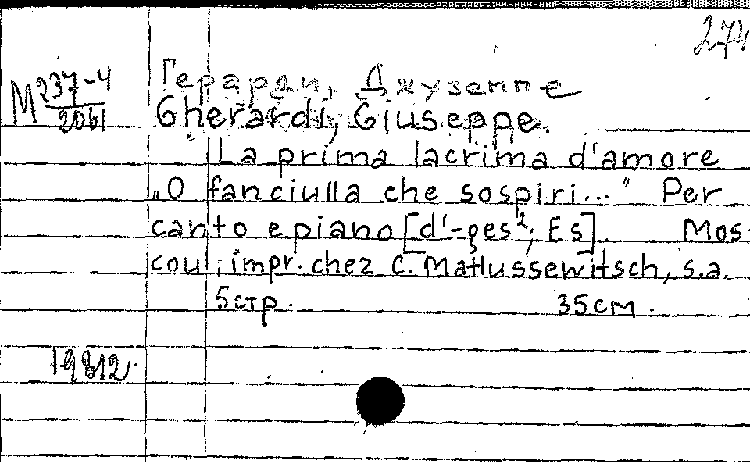 274
М 237-4
2061
Герарди, Джузеппе
Gherardi, Giuseppe.
La prima lacrima d'amore
„O fanciulla che sospiri..." Per
canto e piano [d¹-ges²; Es]. Mos-
cou, impr. chez C. Matlussewitsch, s.a.
5 стр. 35 см.
19812